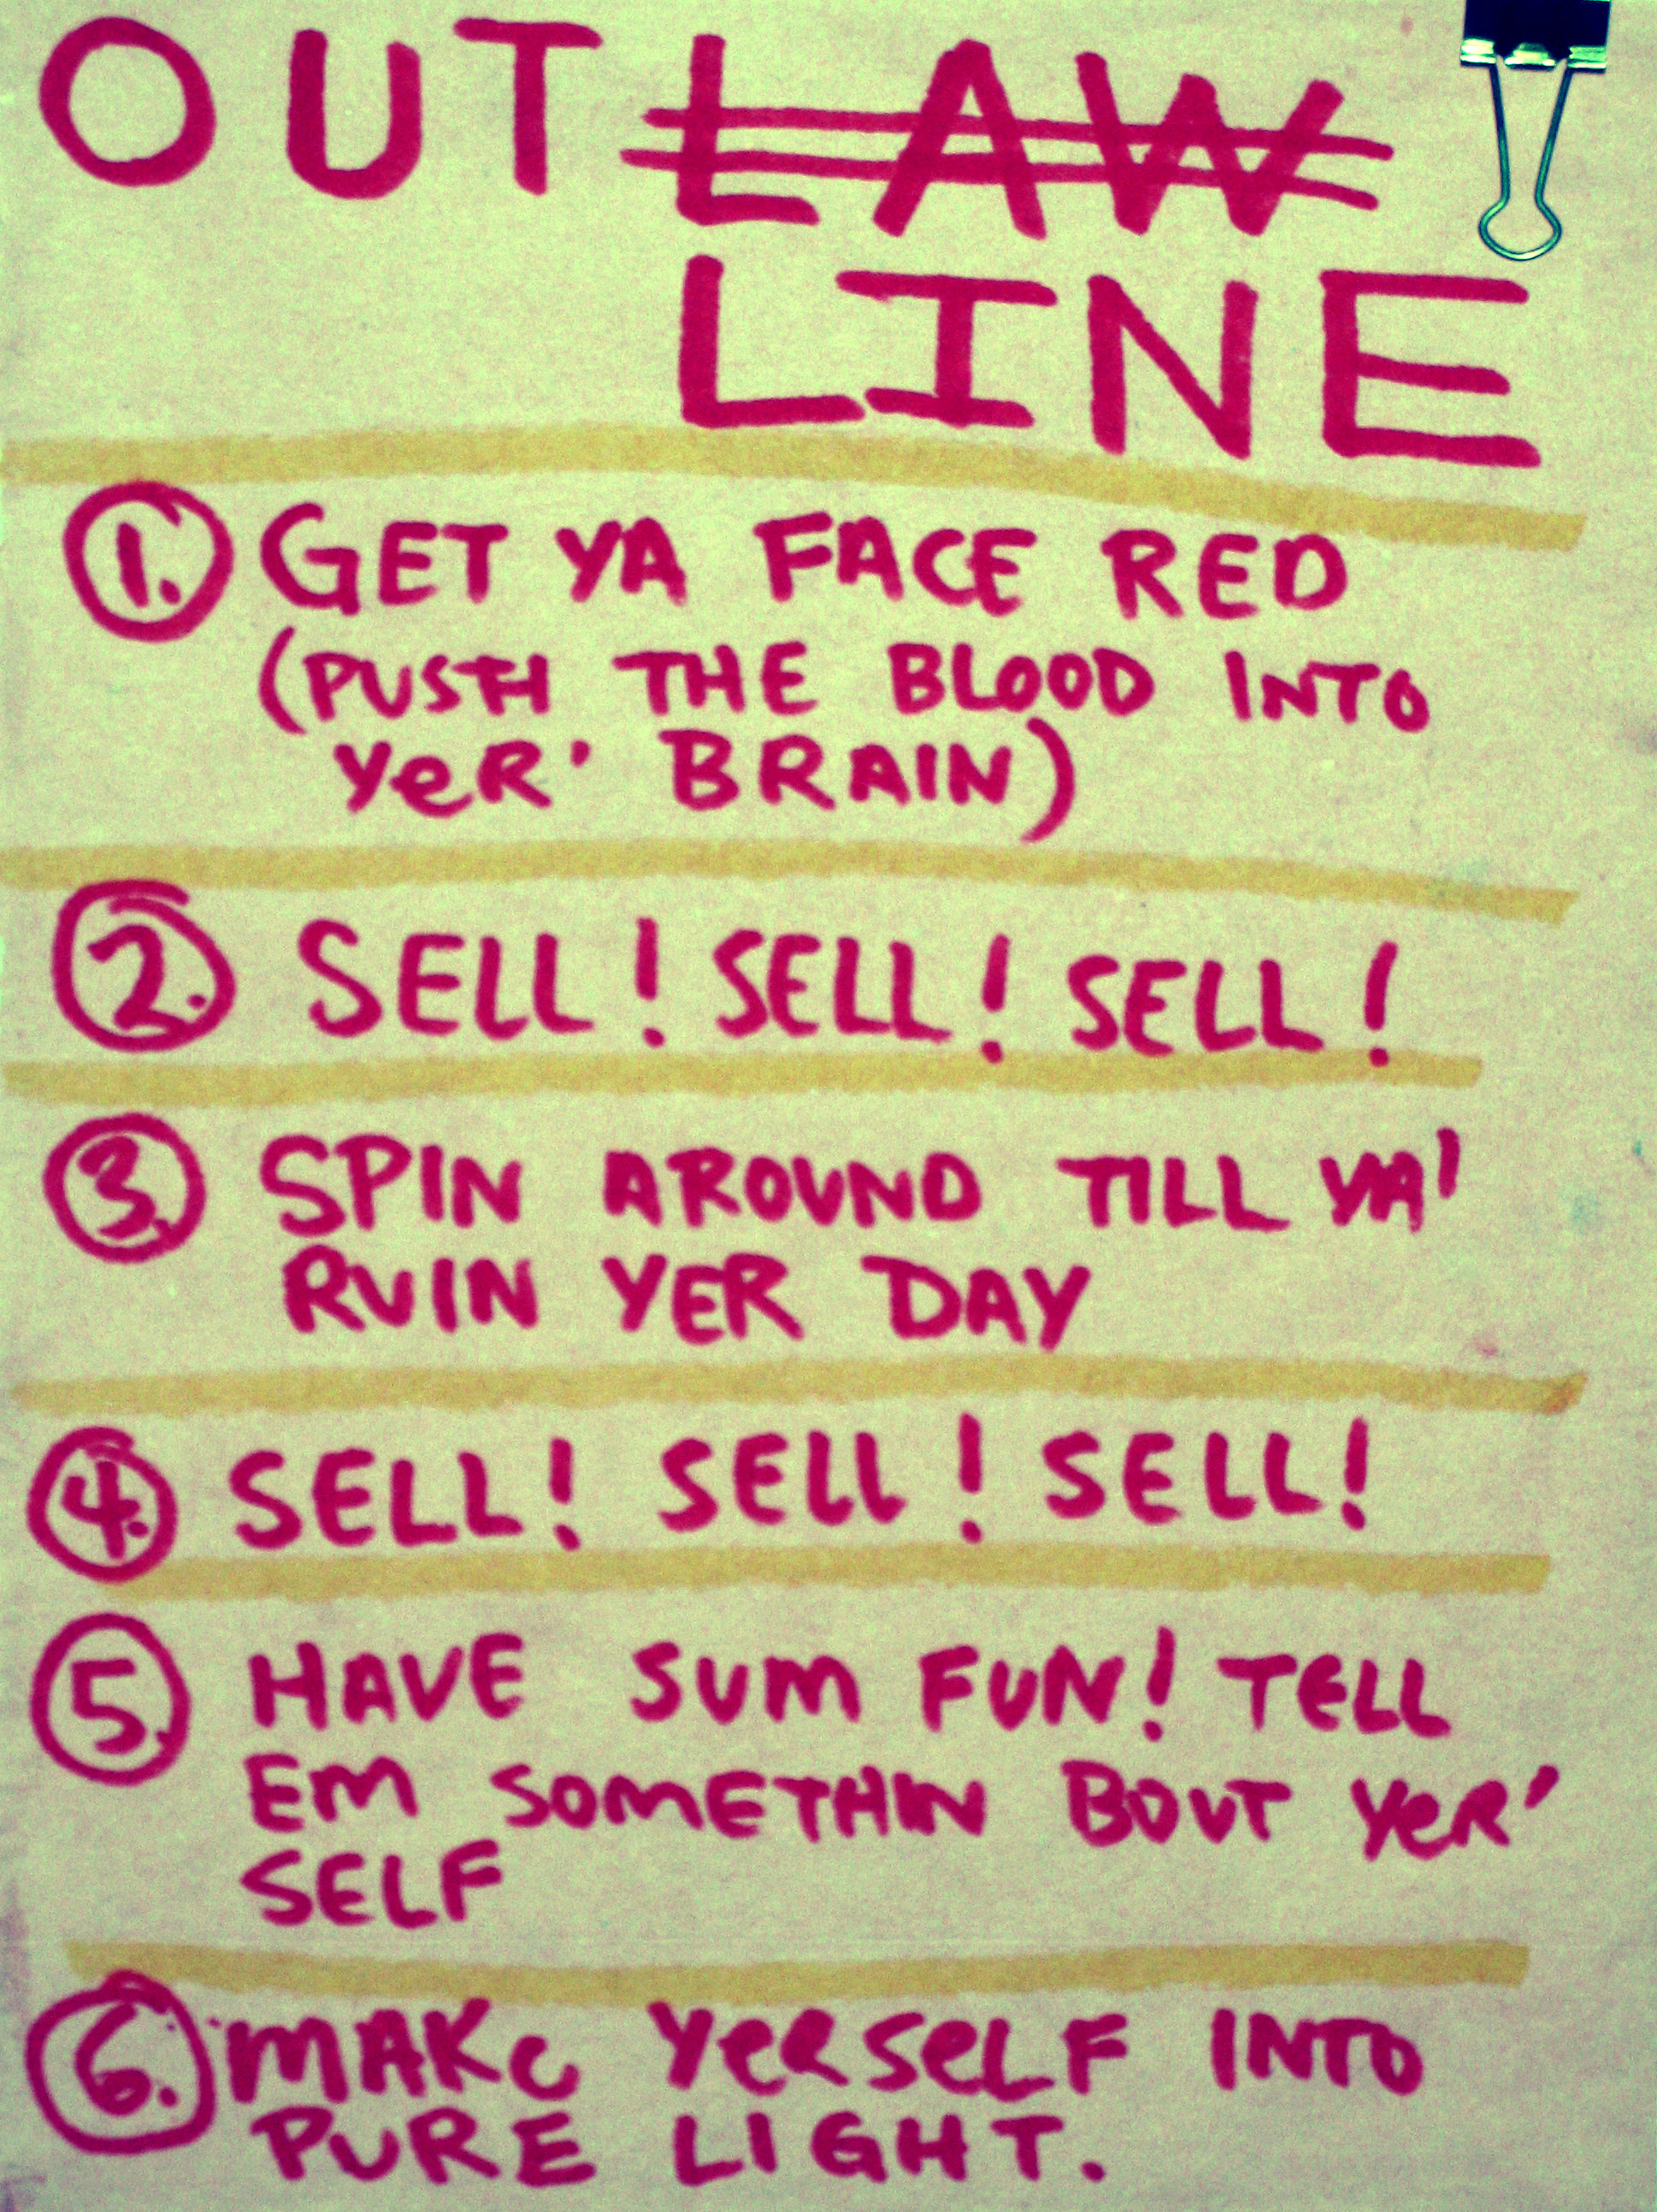 OUT LAW
LINE
1. GET YA FACE RED
(PUSH THE BLOOD INTO
YeR' BRAIN)
2. SELL! SELL! SELL!
3. SPIN AROUND TILL YA'
RUIN YER DAY
4. SELL! SELL! SELL!
5. HAVE SUM FUN! TELL
EM SOMETHIN BOUT YeR'
SELF
6. MAKe YeRSeLF INTO
PURE LIGHT.